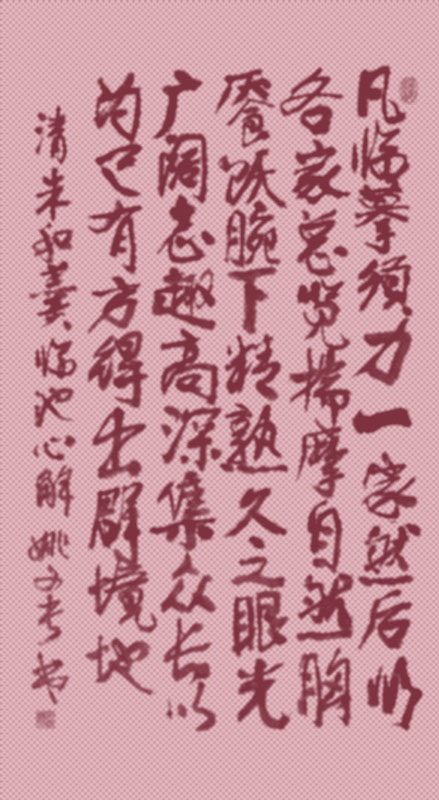 凡临摹须力一家然后以
各家总览揣摩自然胸
餍饫腕下精熟久之眼光
广阔志趣高深集众长以
为己有方得出群境地
清朱和羹临池心解 姚文书